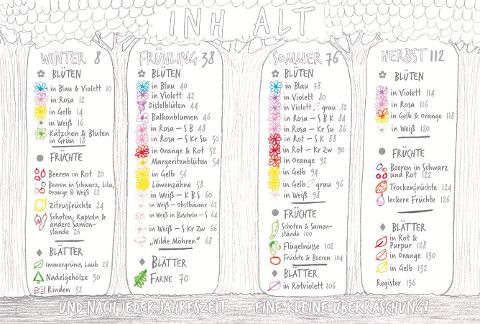 INHALT
WINTER 8
BLÜTEN
in Blau & Violett 10
in Rosa 12
in Gelb 14
in Weiß 16
Kätzchen & Blüten
in Grün 18
FRÜCHTE
Beeren in Rot 20
Beeren in Schwarz, Lila,
Orange & Weiß 21
Zitrusfrüchte 24
Schoten, Kapseln &
andere Samen-
stände 26
BLÄTTER
Immergrünes Laub 28
Nadelgehölze 30
Rinden 32
FRÜHLING 38
BLÜTEN
in Blau 40
in Violett 42
Distelblüten 44
Balkonblumen 46
in Rosa – S B 48
in Rosa – S Kr Su 50
in Orange & Rot 52
Margeritenblüten 54
in Gelb 56
Löwenzähne 58
in Weiß – K B S 60
in Weiß – Obstbäume 62
in Weiß in Büscheln – S
in Weiß – S Kr Zw 66
„Wilde Möhren" 68
BLÄTTER
Farne 70
SOMMER 76
BLÜTEN
in Blau 78
in Violett 80
in Violett grau 82
in Rosa – S B 84
in Rosa – Kr Su 86
in Rot – S K 88
in Rot – Kr Su 90
in Orange 92
in Gelb 94
in Gelb grau 96
in Weiß 98
FRÜCHTE
Schoten & Samen-
stände 100
Flügelnüsse 102
Früchte & Beeren 104
BLÄTTER
in Rotviolett 106
HERBST 112
BLÜTEN
in Violett 114
in Rosa 116
in Gelb & Orange 118
in Weiß 120
FRÜCHTE
Beeren in Schwarz
und Rot 122
Trockenfrüchte 124
leckere Früchte 126
BLÄTTER
in Rot &
Purpur 128
in Orange 130
in Gelb 132
Register 136
UND NACH JEDER JAHRESZEIT EINE KLEINE ÜBERRASCHUNG!